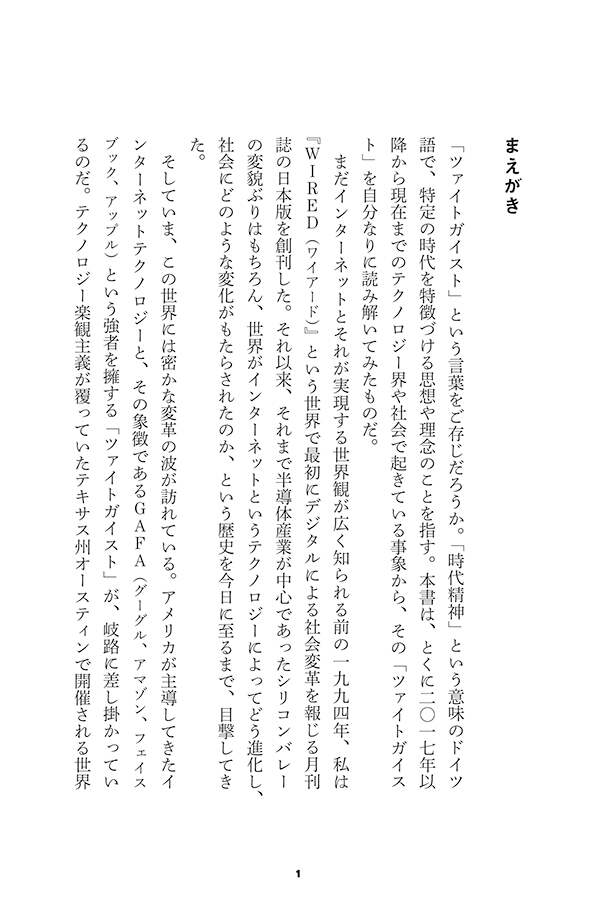 まえがき
「ツァイトガイスト」という言葉をご存じだろうか。「時代精神」という意味のドイツ
語で、特定の時代を特徴づける思想や理念のことを指す。本書は、とくに二〇一七年以
降から現在までのテクノロジー界や社会で起きている事象から、その「ツァイトガイス
ト」を自分なりに読み解いてみたものだ。
まだインターネットとそれが実現する世界観が広く知られる前の一九九四年、私は
『WIRED（ワイアード）』という世界で最初にデジタルによる社会変革を報じる月刊
誌の日本版を創刊した。それ以来、それまで半導体産業が中心であったシリコンバレー
の変貌ぶりはもちろん、世界がインターネットというテクノロジーによってどう進化し、
社会にどのような変化がもたらされたのか、という歴史を今日に至るまで、目撃してき
た。
そしていま、この世界には密かな変革の波が訪れている。アメリカが主導してきたイ
ンターネットテクノロジーと、その象徴であるGAFA（グーグル、アマゾン、フェイス
ブック、アップル）という強者を擁する「ツァイトガイスト」が、岐路に差し掛かってい
るのだ。テクノロジー楽観主義が覆っていたテキサス州オースティンで開催される世界
1